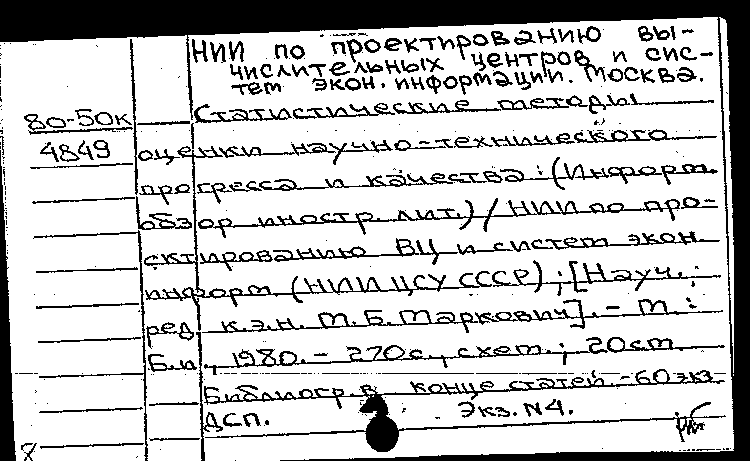 НИИ по проектированию вы-
числительных центров и сис-
тем экон. информации. Москва.
80-50к Статистические методы
4849 оценки научно-технического
прогресса и качества: (Информ.
обзор иностр. лит.) / НИИ по про-
ектированию ВЦ и систем экон.
информ (НИИ ЦСУ СССР); [Науч.
ред. к.э.н. М.Б. Маркович]. - М.:
Б.и., 1980. - 270с., схем.; 20см
Библиогр. в конце статей. - 60экз.
ДСП. Экз. N4.
8